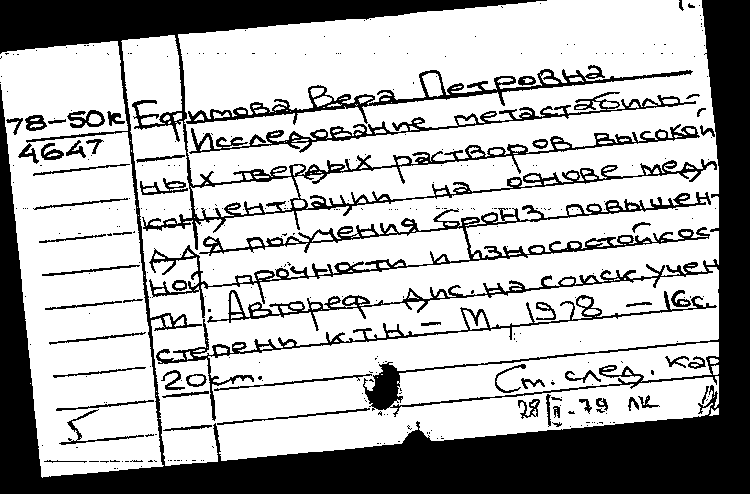 1.
78-50к Ефимова, Вера Петровна.
4647 Исследование метастабиль-
ных твердых растворов высокой
концентрации на основе меди
для получения бронз повышен-
ной прочности и износостойкос-
ти : Автореф. дис. на соиск. учен
степени к.т.н. - М., 1978. - 16с.
20 ст.
Ст. след. кар
5 28/II-79 ЛК